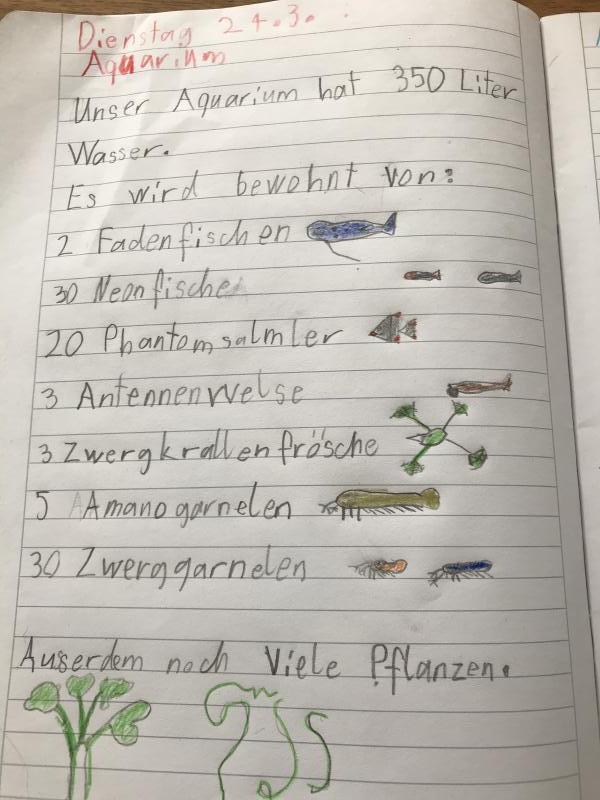 Dienstag 24.3.
Aquarium
Unser Aquarium hat 350 Liter
Wasser.
Es wird bewohnt von:
2 Fadenfischen
30 Neonfische
20 Phantomsalmler
3 Antennenwelse
3 Zwergkrallenfrösche
5 Amanogarnelen
30 Zwerggarnelen
Außerdem noch Viele Pflanzen.